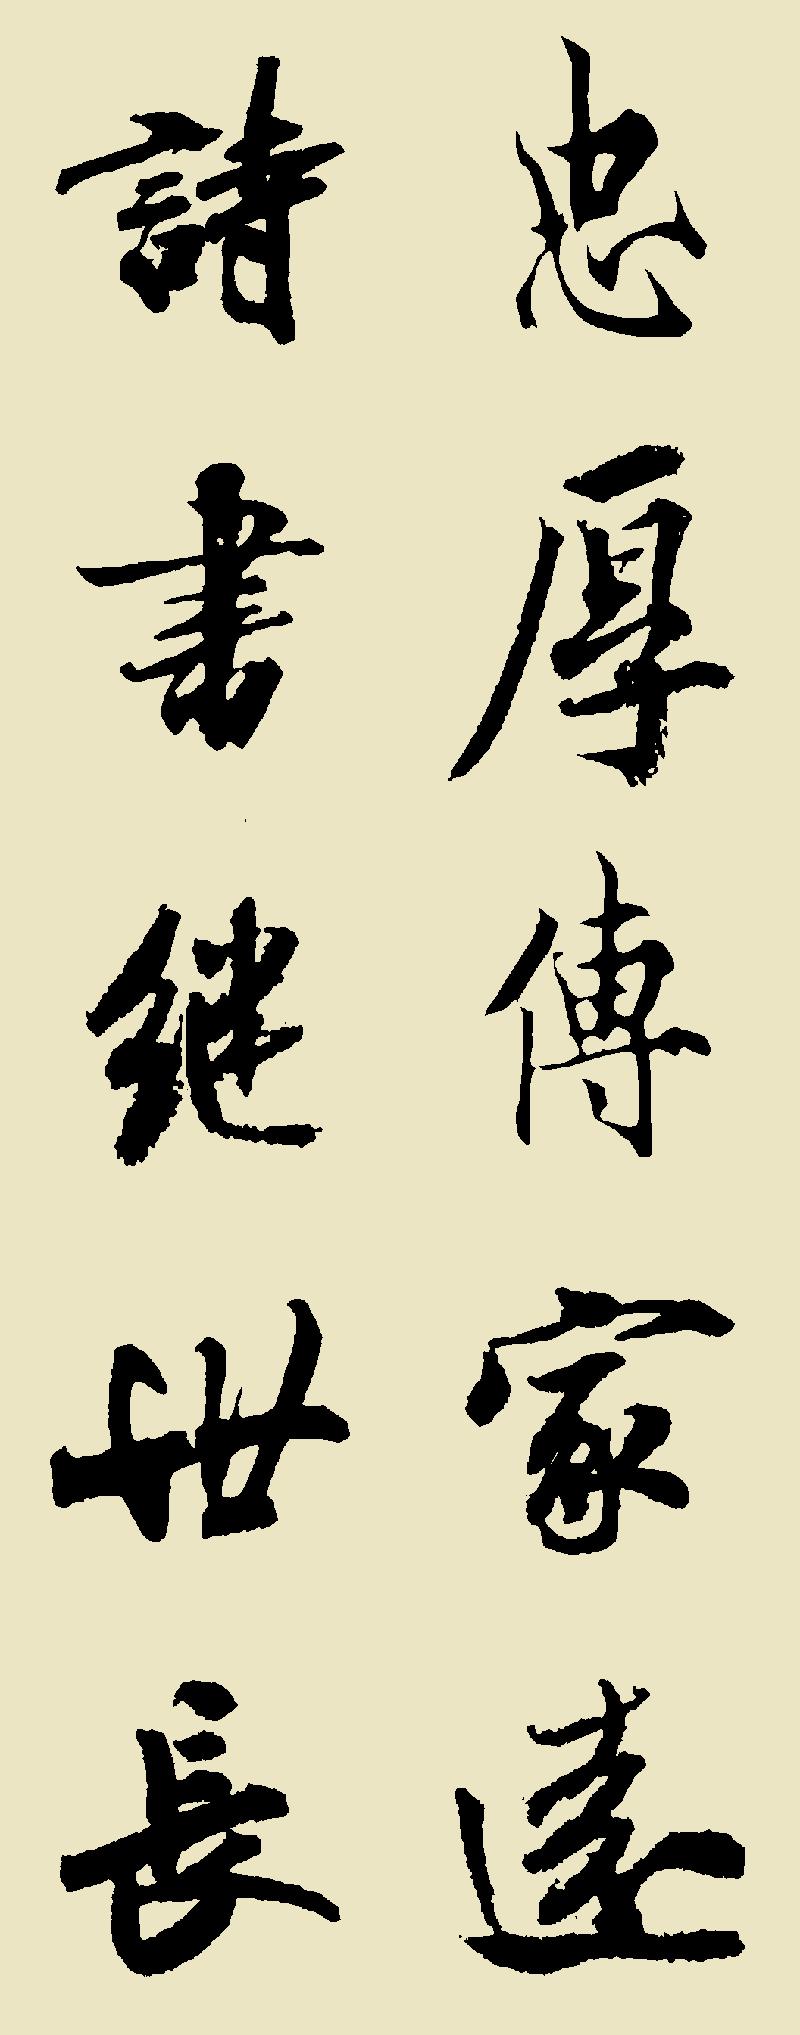 忠厚傳家遠
詩書继世長